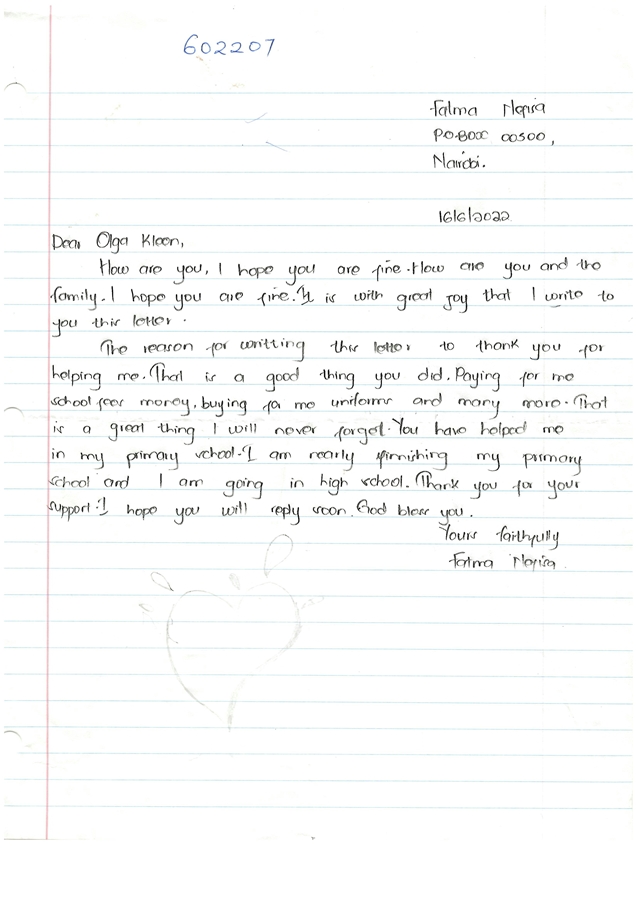 602207
Fatma Nafisa
P.O.BOX 00500,
Nairobi.
16/6/2022
Dear Olga Kleen,
How are you, I hope you are fine. How are you and the
family. I hope you are fine. It is with great joy that I write to
you this letter.
The reason for writting this letter to thank you for
helping me. That is a good thing you did. Paying for me
school fees money, buying for me uniforms and many more. That
is a great thing I will never forget. You have helped me
in my primary school. I am nearly finnishing my primary
school and I am going in high school. Thank you for your
support. I hope you will reply soon. God bless you.
Yours faithfully
Fatma Nafisa